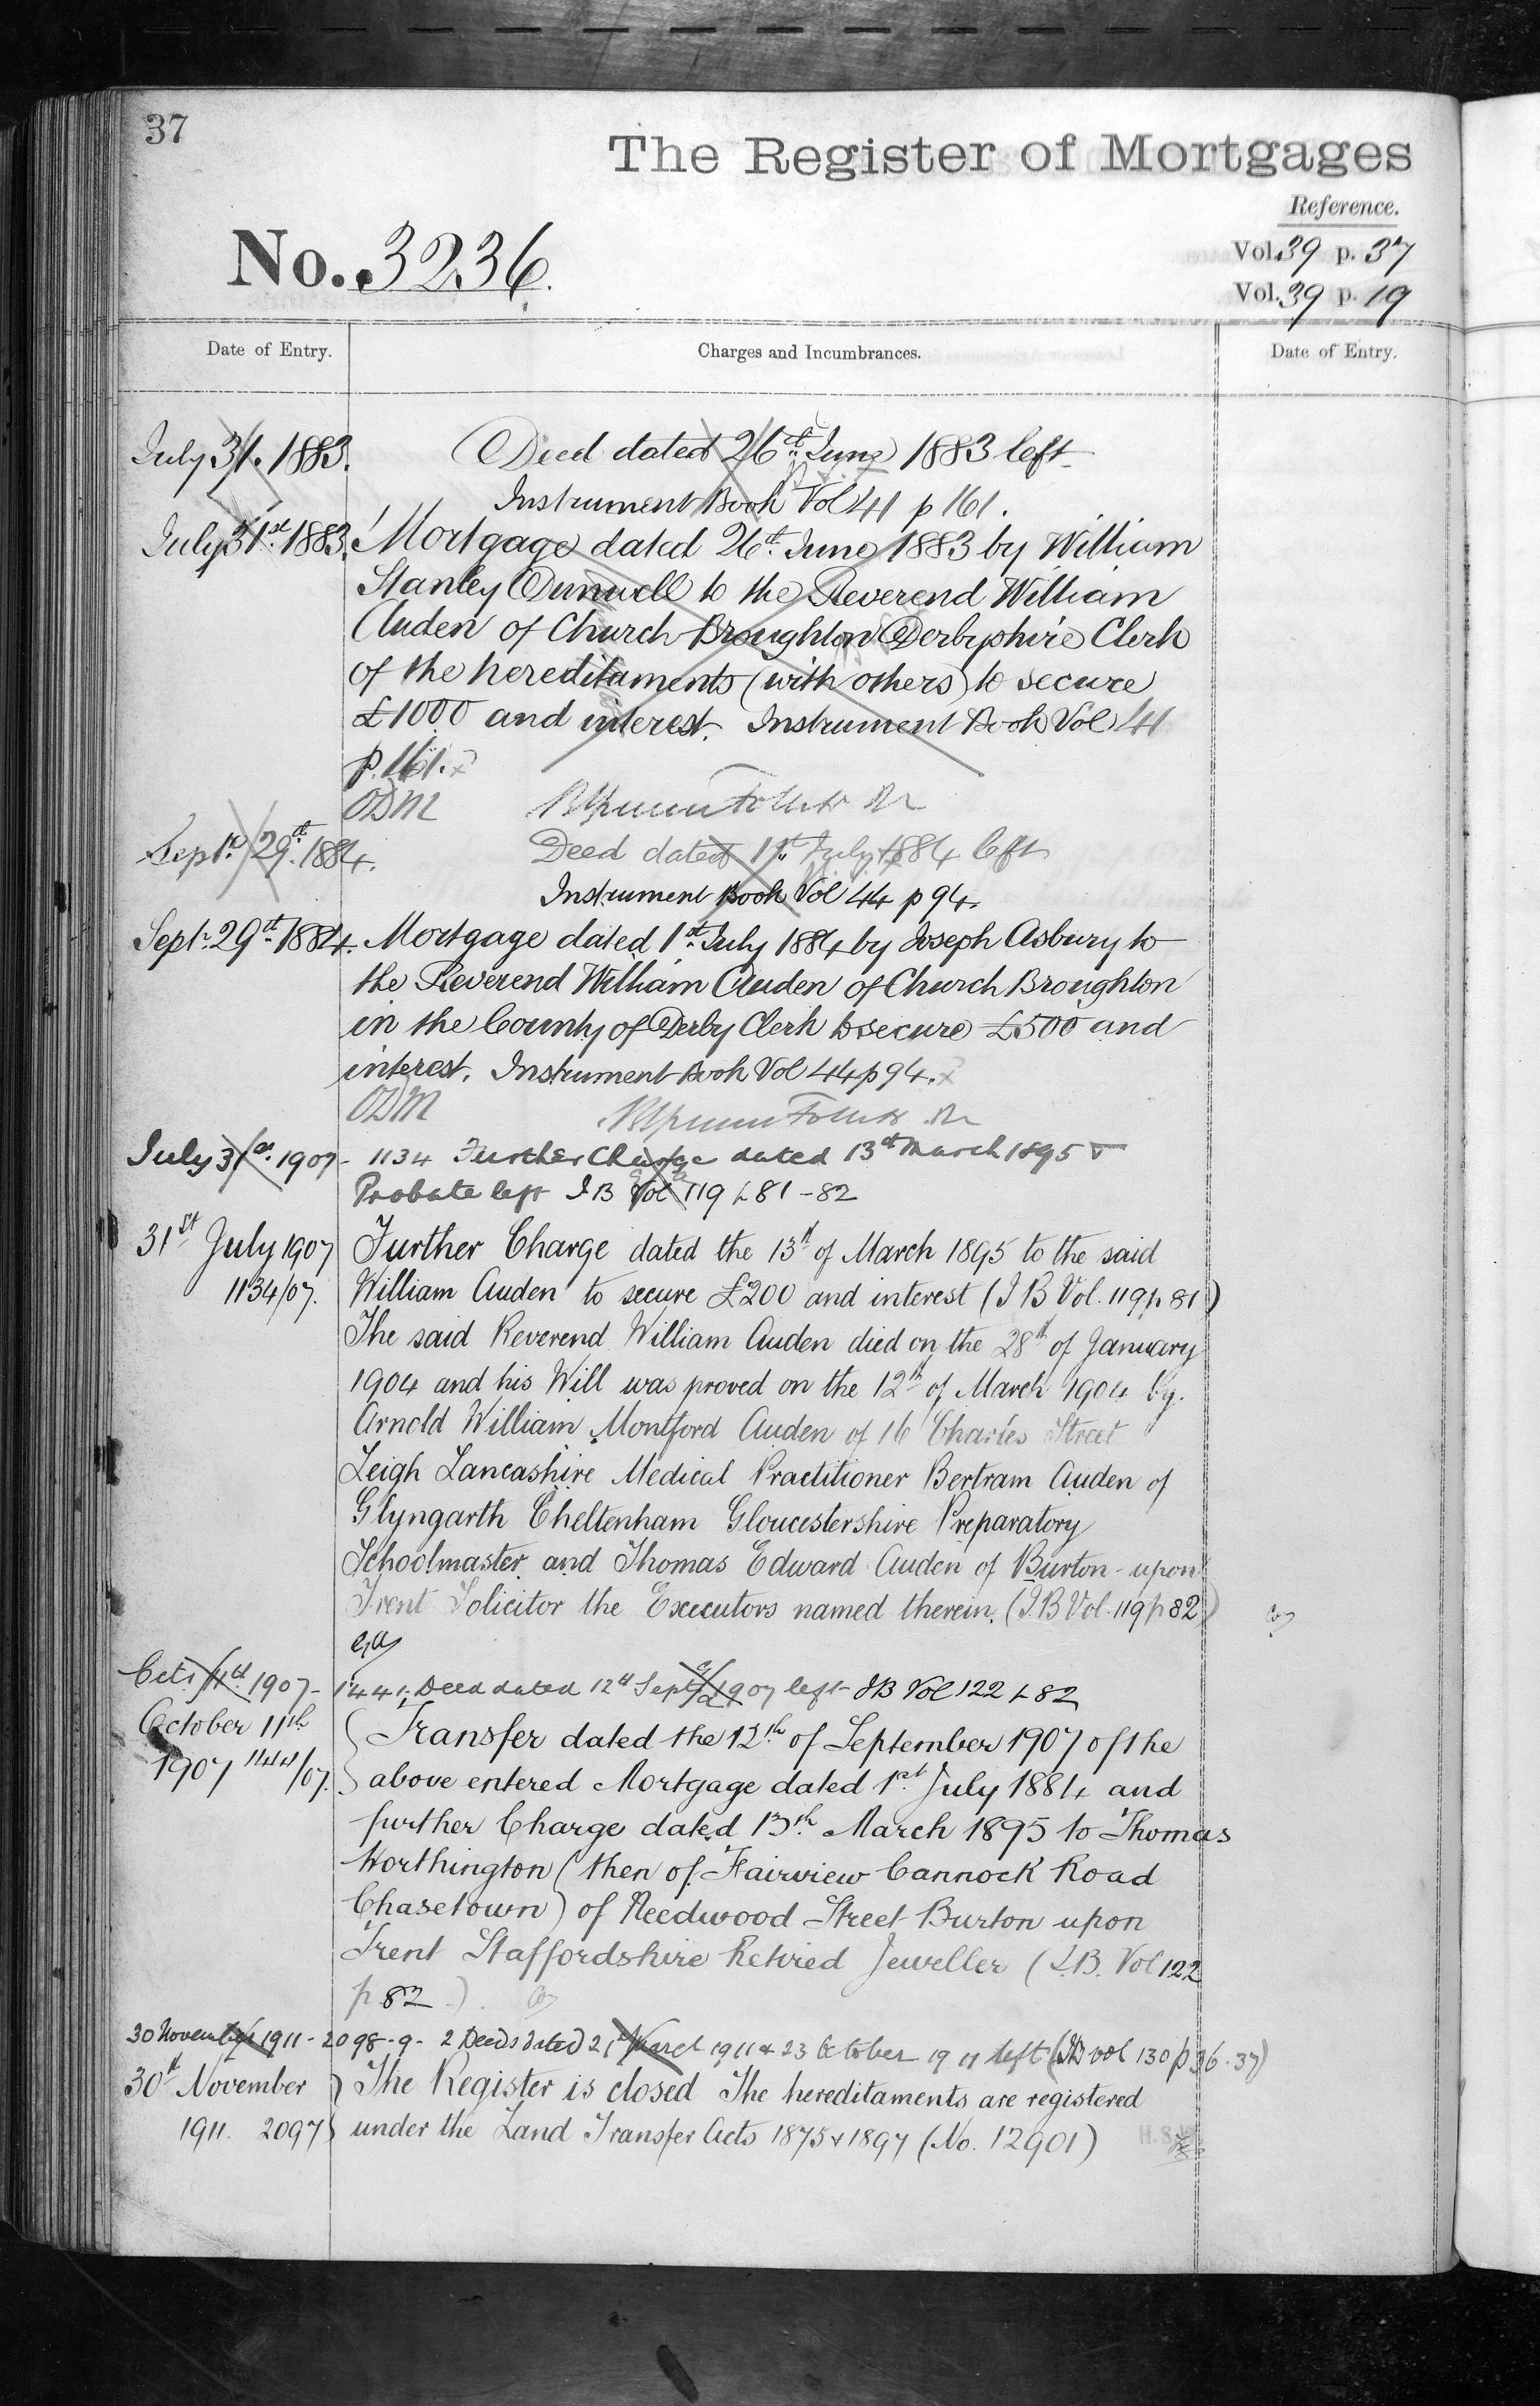 37
The Register of Mortgages
Reference.
No. 3236.
Vol. 39 p. 37
Vol. 39 p. 19
Date of Entry. Charges and Incumbrances. Date of Entry.
July 31. 1883. Deed dated 26th June 1883 left
Instrument Book Vol 41 p 161.
July 31st 1883. Mortgage dated 26th June 1883 by William
Stanley Dunwell to the Reverend William
Auden of Church Broughton Derbyshire Clerk
of the hereditaments (with others) to secure
£1000 and interest. Instrument Book Vol 41
p. 161.
ODM
Sept. 29th 1884. Deed dated 1st July 1884 left
Instrument Book Vol 44 p 94.
Sept. 29th 1884. Mortgage dated 1st July 1884 by Joseph Asbury to
the Reverend William Auden of Church Broughton
in the County of Derby Clerk to secure £500 and
interest. Instrument Book Vol 44 p 94.
ODM
July 31st 1907 - 1134 Further Charge dated 13th March 1895 &
Probate left I B Vol 119 p 81 - 82
31st July 1907 Further Charge dated the 13th of March 1895 to the said
1134/07. William Auden to secure £200 and interest (I B Vol. 119 p 81)
The said Reverend William Auden died on the 28th of January
1904 and his Will was proved on the 12th of March 1904 by
Arnold William Montford Auden of 16 Charles Street
Leigh Lancashire Medical Practitioner Bertram Auden of
Glyngarth Cheltenham Gloucestershire Preparatory
Schoolmaster and Thomas Edward Auden of Burton-upon
Trent Solicitor the Executors named therein. (I.B Vol. 119 p 82)
Oct. 11th 1907 - 1441. Deed dated 12th Sept 1907 left I B Vol 122 p 82
October 11th Transfer dated the 12th of September 1907 of the
1907 1441/07. above entered Mortgage dated 1st July 1884 and
further Charge dated 13th March 1895 to Thomas
Worthington (then of Fairview Cannock Road
Chasetown) of Needwood Street Burton upon
Trent Staffordshire Retired Jeweller (I.B. Vol 122
p 82)
30 November 1911 - 2098-9 - 2 Deeds dated 21st March 1911 & 23 October 1911 left (IB vol 130 p 36-37)
30th November The Register is closed The hereditaments are registered
1911. 2097 under the Land Transfer Acts 1875 & 1897 (No. 12901)